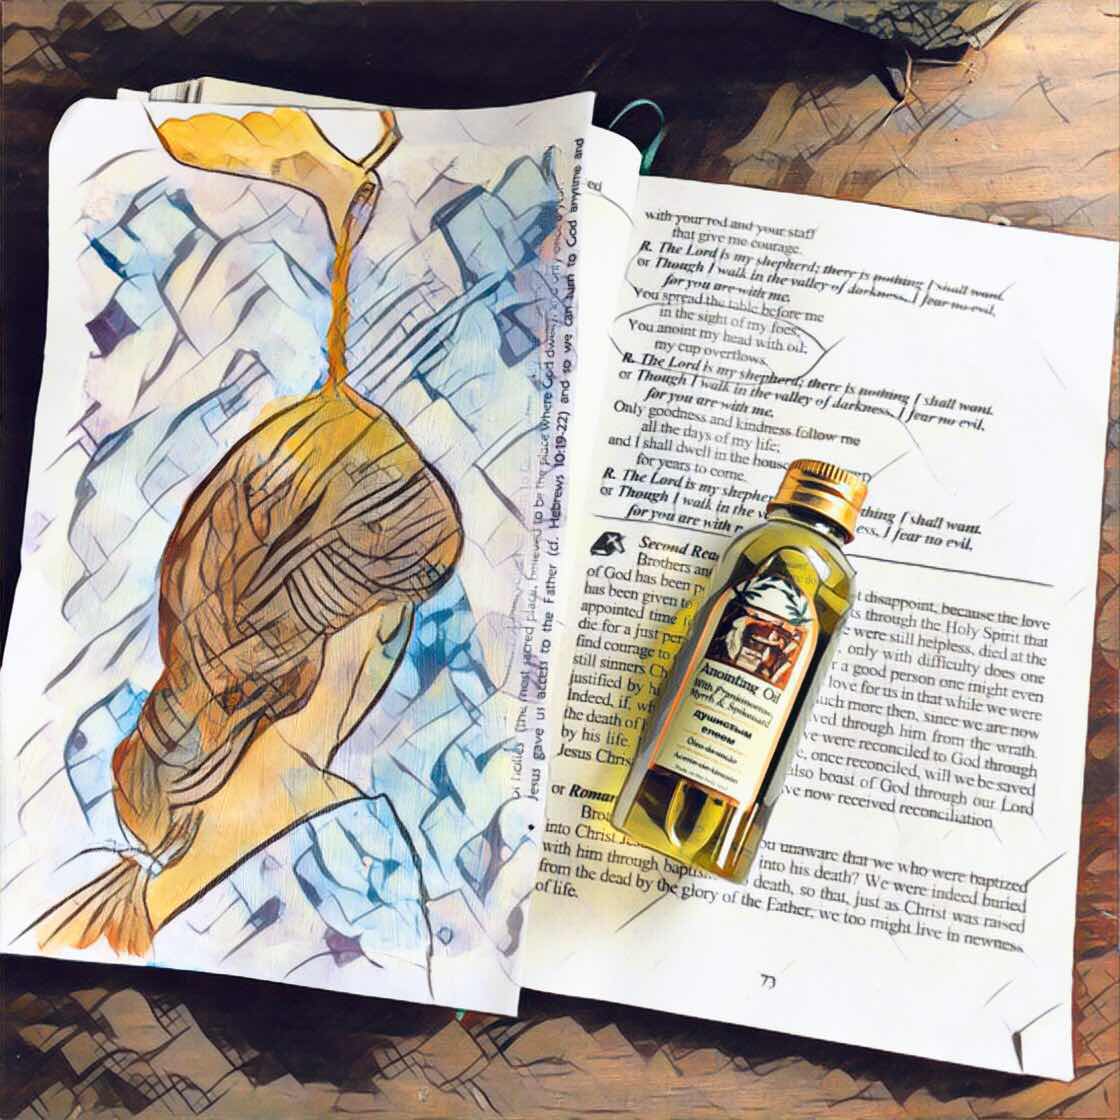 of holies (the most sacred place, believed to be the place where God
Jesus gave us access to the Father (cf. Hebrews 10:19-22) and so we can turn to God anytime and
ed
with your rod and your staff
that give me courage.
R. The Lord is my shepherd; there is nothing I shall want.
or Though I walk in the valley of darkness, I fear no evil,
for you are with me.
You spread the table before me
in the sight of my foes;
You anoint my head with oil;
my cup overflows.
R. The Lord is my shepherd; there is nothing I shall want.
or Though I walk in the valley of darkness, I fear no evil,
for you are with me.
Only goodness and kindness follow me
all the days of my life;
and I shall dwell in the house
for years to come.
R. The Lord is my shepher thing I shall want.
or Though I walk in the v ess, I fear no evil,
for you are with
Second Rea
Brothers and t disappoint, because the love
of God has been p s through the Holy Spirit that
has been given to were still helpless, died at the
appointed time , only with difficulty does one
die for a just per r a good person one might even
find courage to love for us in that while we were
still sinners Ch uch more then, since we are now
justified by hi ved through him from the wrath.
Indeed, if, wh we were reconciled to God through
the death of h e, once reconciled, will we be saved
by his life. also boast of God through our Lord
Jesus Chris ve now received reconciliation.
or Roman
Bro ou unaware that we who were baptized
into Christ Jes into his death? We were indeed buried
with him through baptis death, so that, just as Christ was raised
from the dead by the glory of the Father, we too might live in newness
of life.
73
Anointing Oil
With Frankincense
Myrrh & Spikenard
душистым
елеем